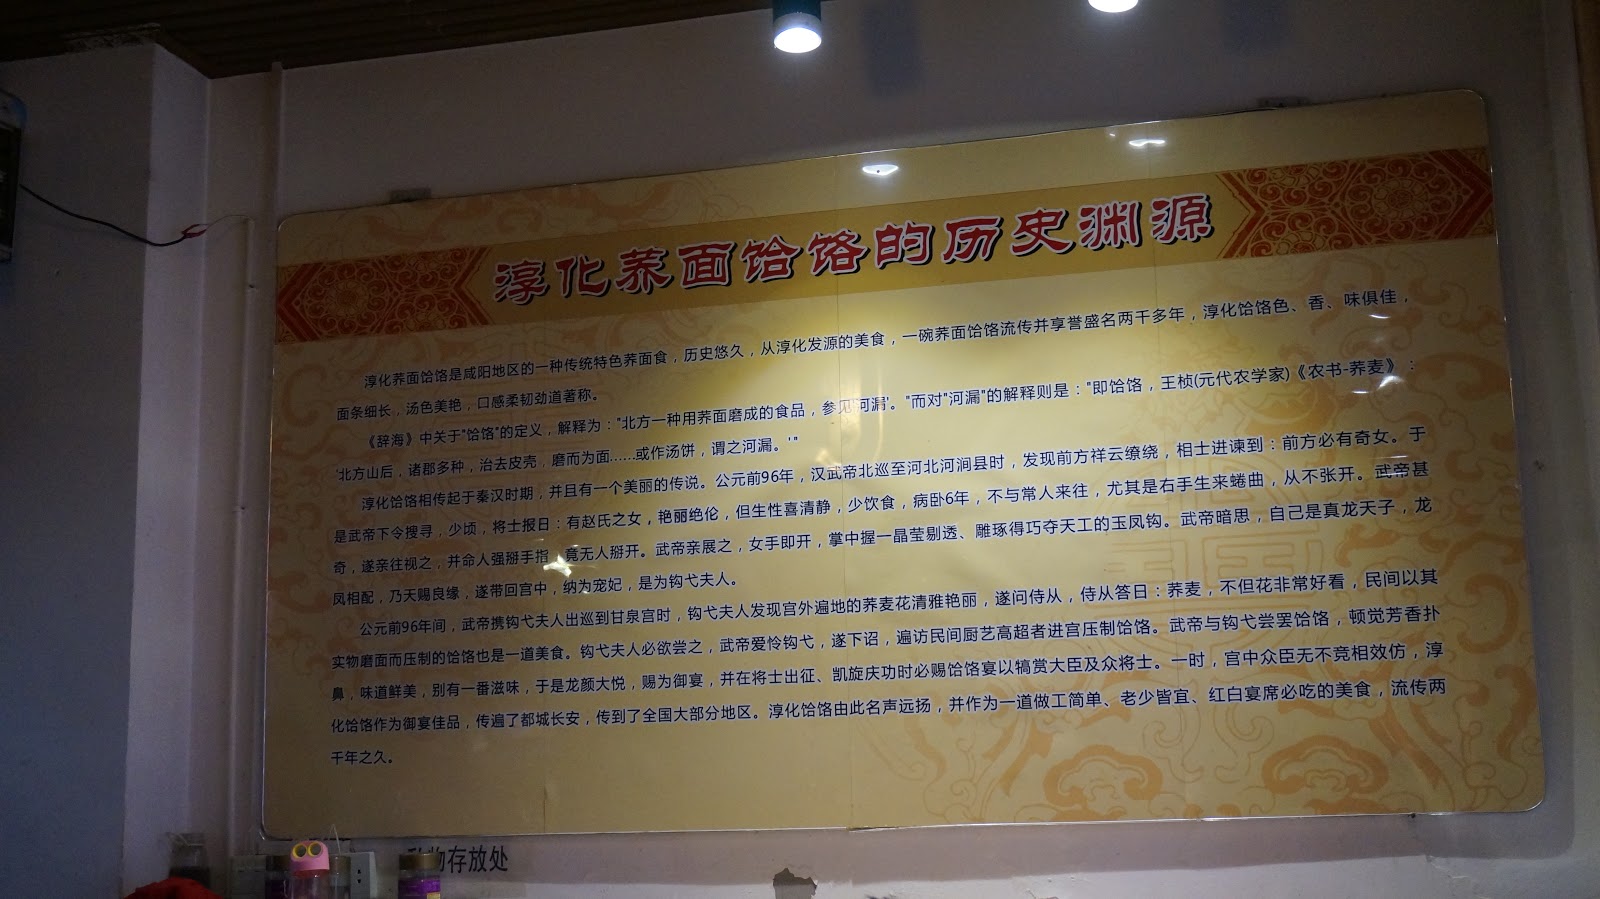 淳化荞面饸饹的历史渊源
淳化荞面饸饹是咸阳地区的一种传统特色荞面食，历史悠久，从淳化发源的美食，一碗荞面饸饹流传并享誉盛名两千多年，淳化饸饹色、香、味俱佳，
面条细长，汤色美艳，口感柔韧劲道著称。
《辞海》中关于"饸饹"的定义，解释为："北方一种用荞面磨成的食品，参见'河漏'。"而对"河漏"的解释则是："即饸饹，王桢(元代农学家)《农书-荞麦》：
'北方山后，诸郡多种，治去皮壳，磨而为面……或作汤饼，谓之河漏。'"
淳化饸饹相传起于秦汉时期，并且有一个美丽的传说。公元前96年，汉武帝北巡至河北河涧县时，发现前方祥云缭绕，相士进谏到：前方必有奇女。于
是武帝下令搜寻，少顷，将士报日：有赵氏之女，艳丽绝伦，但生性喜清静，少饮食，病卧6年，不与常人来往，尤其是右手生来蜷曲，从不张开。武帝甚
奇，遂亲往视之，并命人强掰手指，竟无人掰开。武帝亲展之，女手即开，掌中握一晶莹剔透、雕琢得巧夺天工的玉凤钩。武帝暗思，自己是真龙天子，龙
凤相配，乃天赐良缘，遂带回宫中，纳为宠妃，是为钩弋夫人。
公元前96年间，武帝携钩弋夫人出巡到甘泉宫时，钩弋夫人发现宫外遍地的荞麦花清雅艳丽，遂问侍从，侍从答日：荞麦，不但花非常好看，民间以其
实物磨面而压制的饸饹也是一道美食。钩弋夫人必欲尝之，武帝爱怜钩弋，遂下诏，遍访民间厨艺高超者进宫压制饸饹。武帝与钩弋尝罢饸饹，顿觉芳香扑
鼻，味道鲜美，别有一番滋味，于是龙颜大悦，赐为御宴，并在将士出征、凯旋庆功时必赐饸饹宴以犒赏大臣及众将士。一时，宫中众臣无不竞相效仿，淳
化饸饹作为御宴佳品，传遍了都城长安，传到了全国大部分地区。淳化饸饹由此名声远扬，并作为一道做工简单、老少皆宜、红白宴席必吃的美食，流传两
千年之久。
物存放处